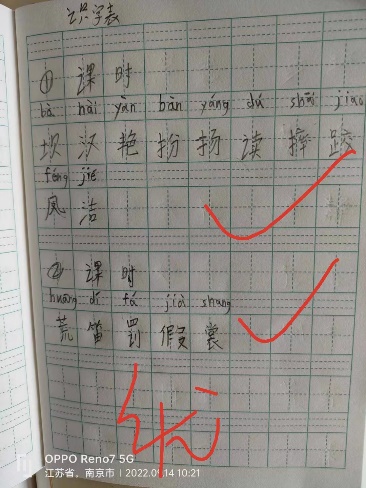 识字表
① 课时
bà hài yàn bàn yáng dú shuāi jiāo
坝 汉 艳 扮 扬 读 摔 跤
fèng jié
凤 洁
② 课时
huāng dí fá jià shang
荒 笛 罚 假 裳
优
OPPO Reno7 5G
江苏省，南京市 | 2022.09.14 10:21